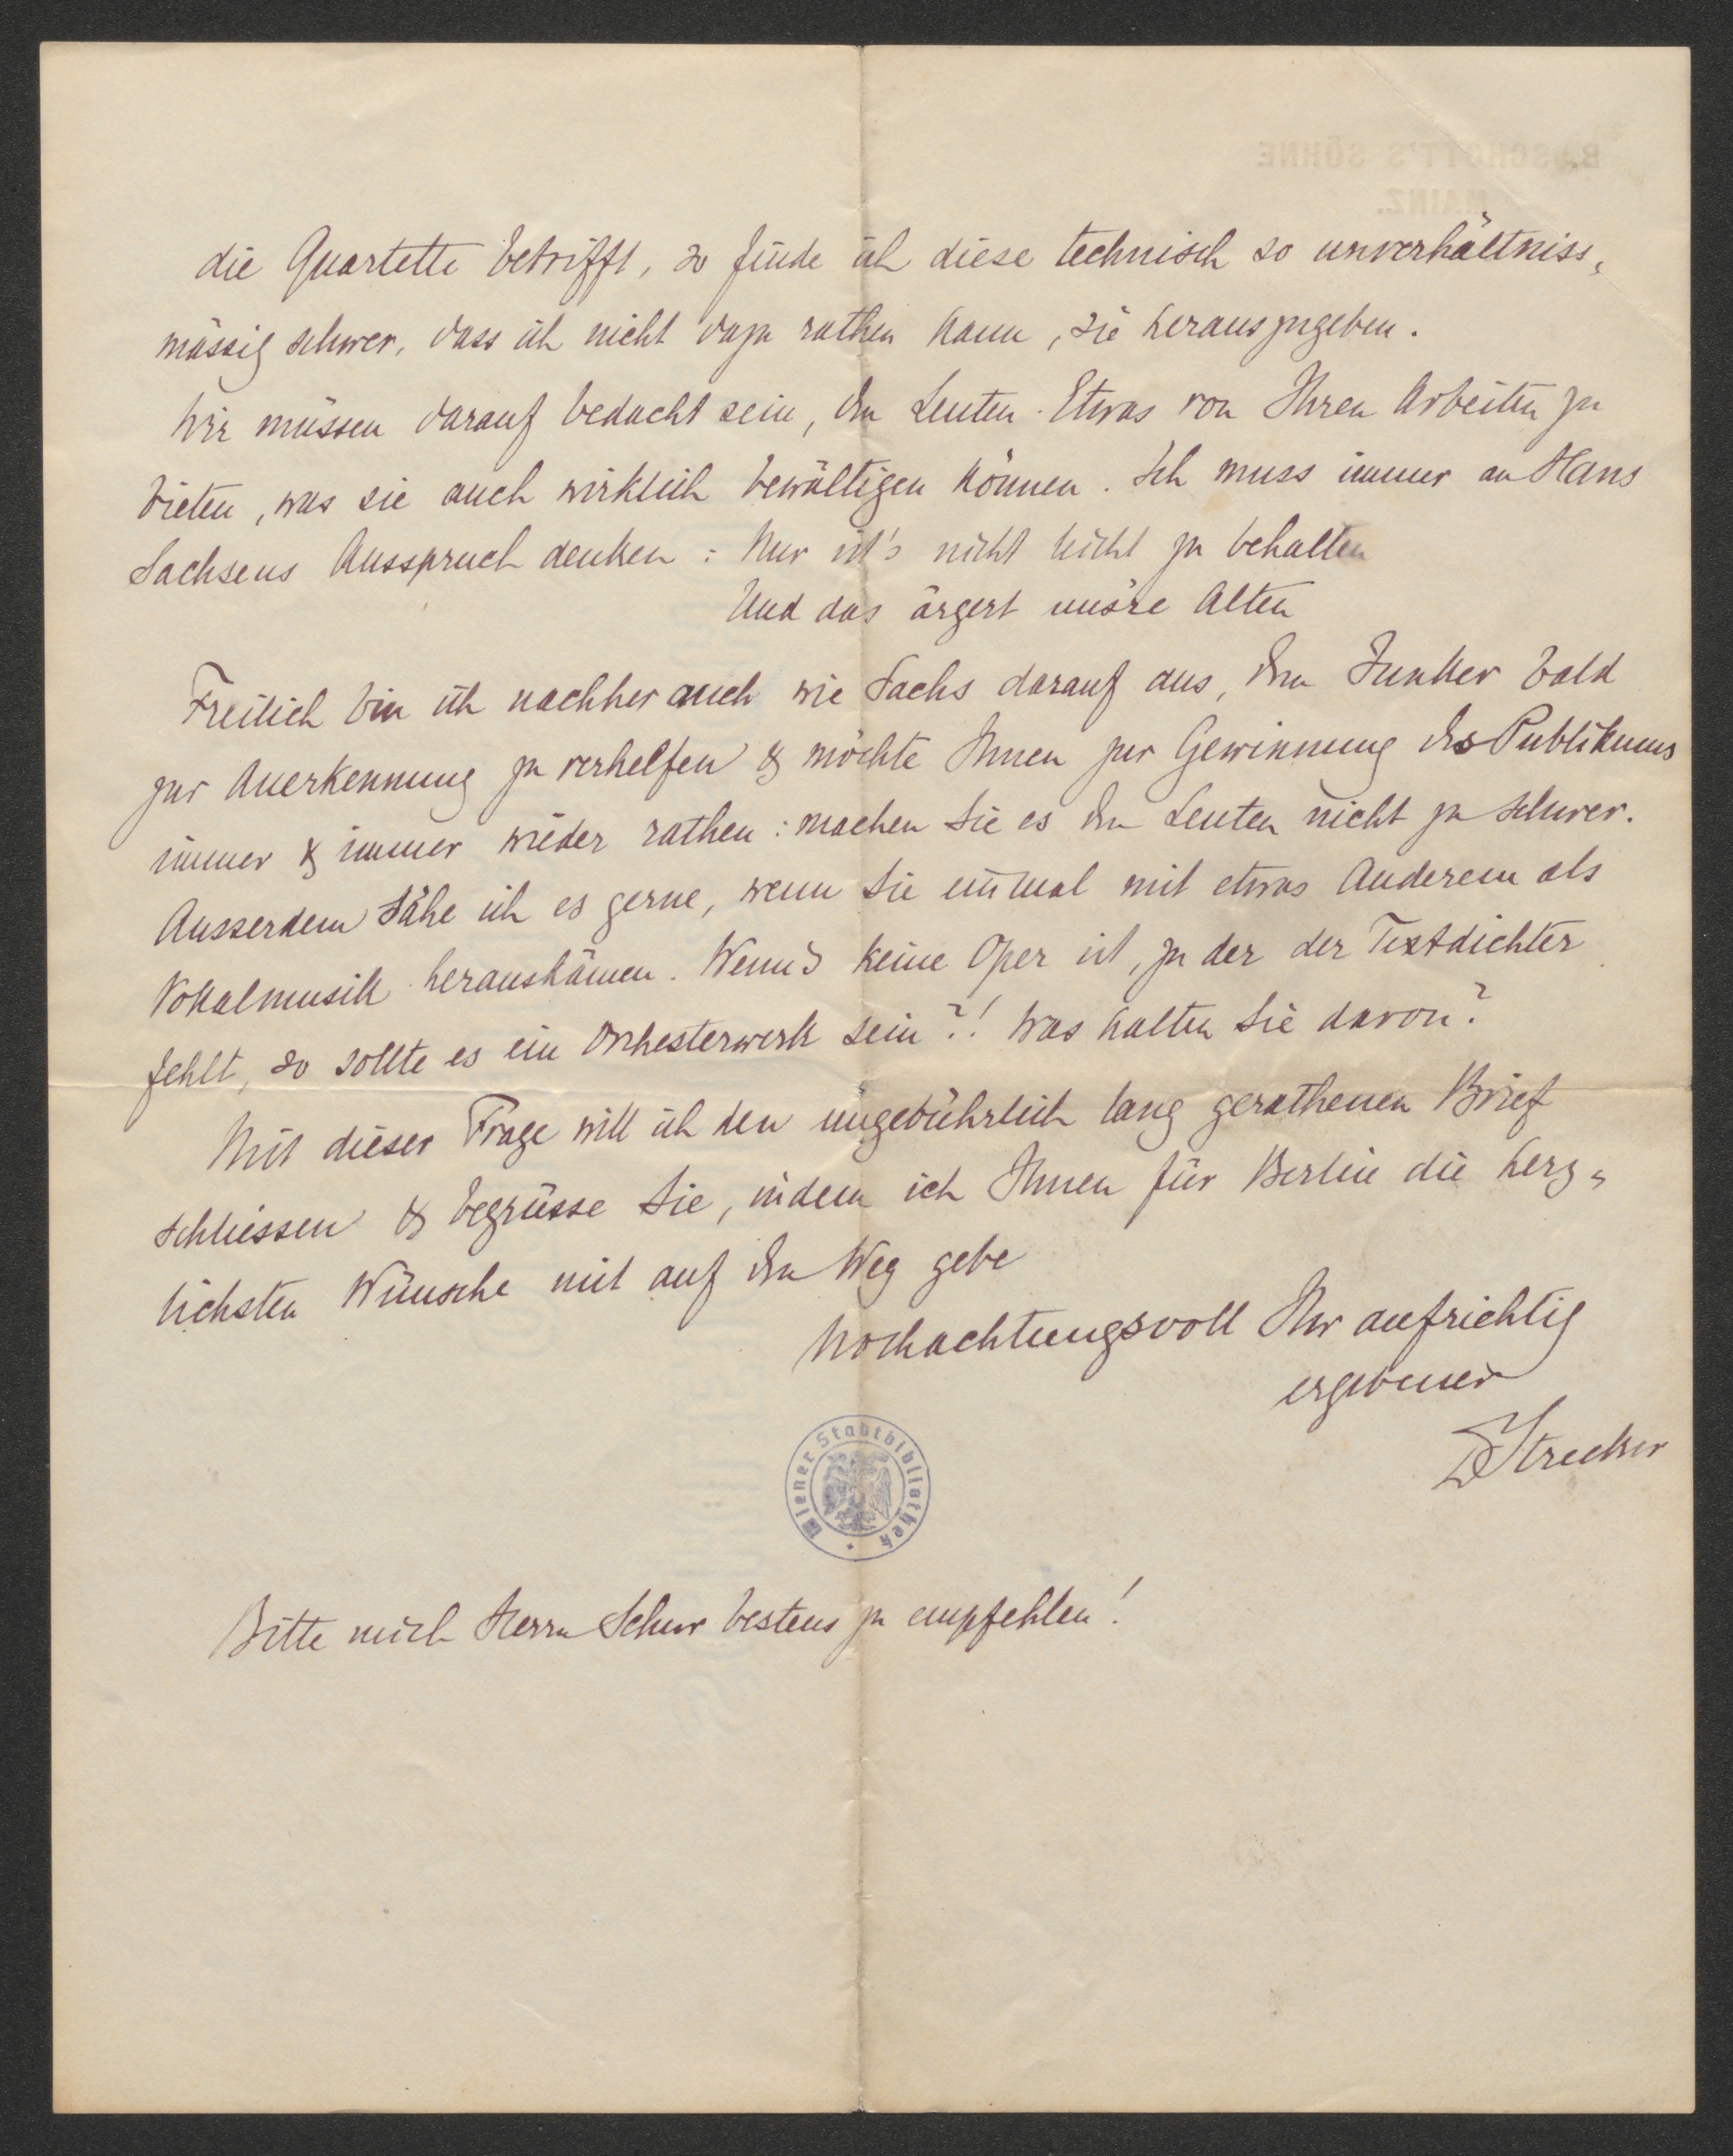 B. SCHOTT'S SÖHNE
MAINZ.
die Quartette betrifft, so finde ich diese technisch so unverhältniss„
mässig schwer, dass ich nicht dazu rathen kann, sie herauszugeben.
Wir müssen darauf bedacht sein, den Leuten Etwas von Ihren Arbeiten zu
bieten, was sie auch wirklich bewältigen können. Ich muss immer an Hans
Sachsens Ausspruch denken: Nur ist's nicht leicht zu behalten
Und das ärgert uns're Alten
Freilich bin ich nachher auch wie Sachs darauf aus, dem Junker bald
zur Anerkennung zu verhelfen & möchte Ihnen zur Gewinnung des Publikums
immer & immer wieder rathen: machen Sie es den Leuten nicht zu schwer.
Ausserdem sähe ich es gerne, wenn Sie einmal mit etwas Anderem als
Vokalmusik herauskämen. Wenn's keine Oper ist, zu der der Textdichter
fehlt, so sollte es ein Orchesterwerk sein?! Was halten Sie davon?
Mit dieser Frage will ich den ungebührlich lang gerathenen Brief
schliessen & begrüsse Sie, indem ich Ihnen für Berlin die herz„
lichsten Wünsche mit auf den Weg gebe
Hochachtungsvoll Ihr aufrichtig
ergebener
Strecker
Wiener Stadtbibliothek
Bitte mich Herrn Schur bestens zu empfehlen!